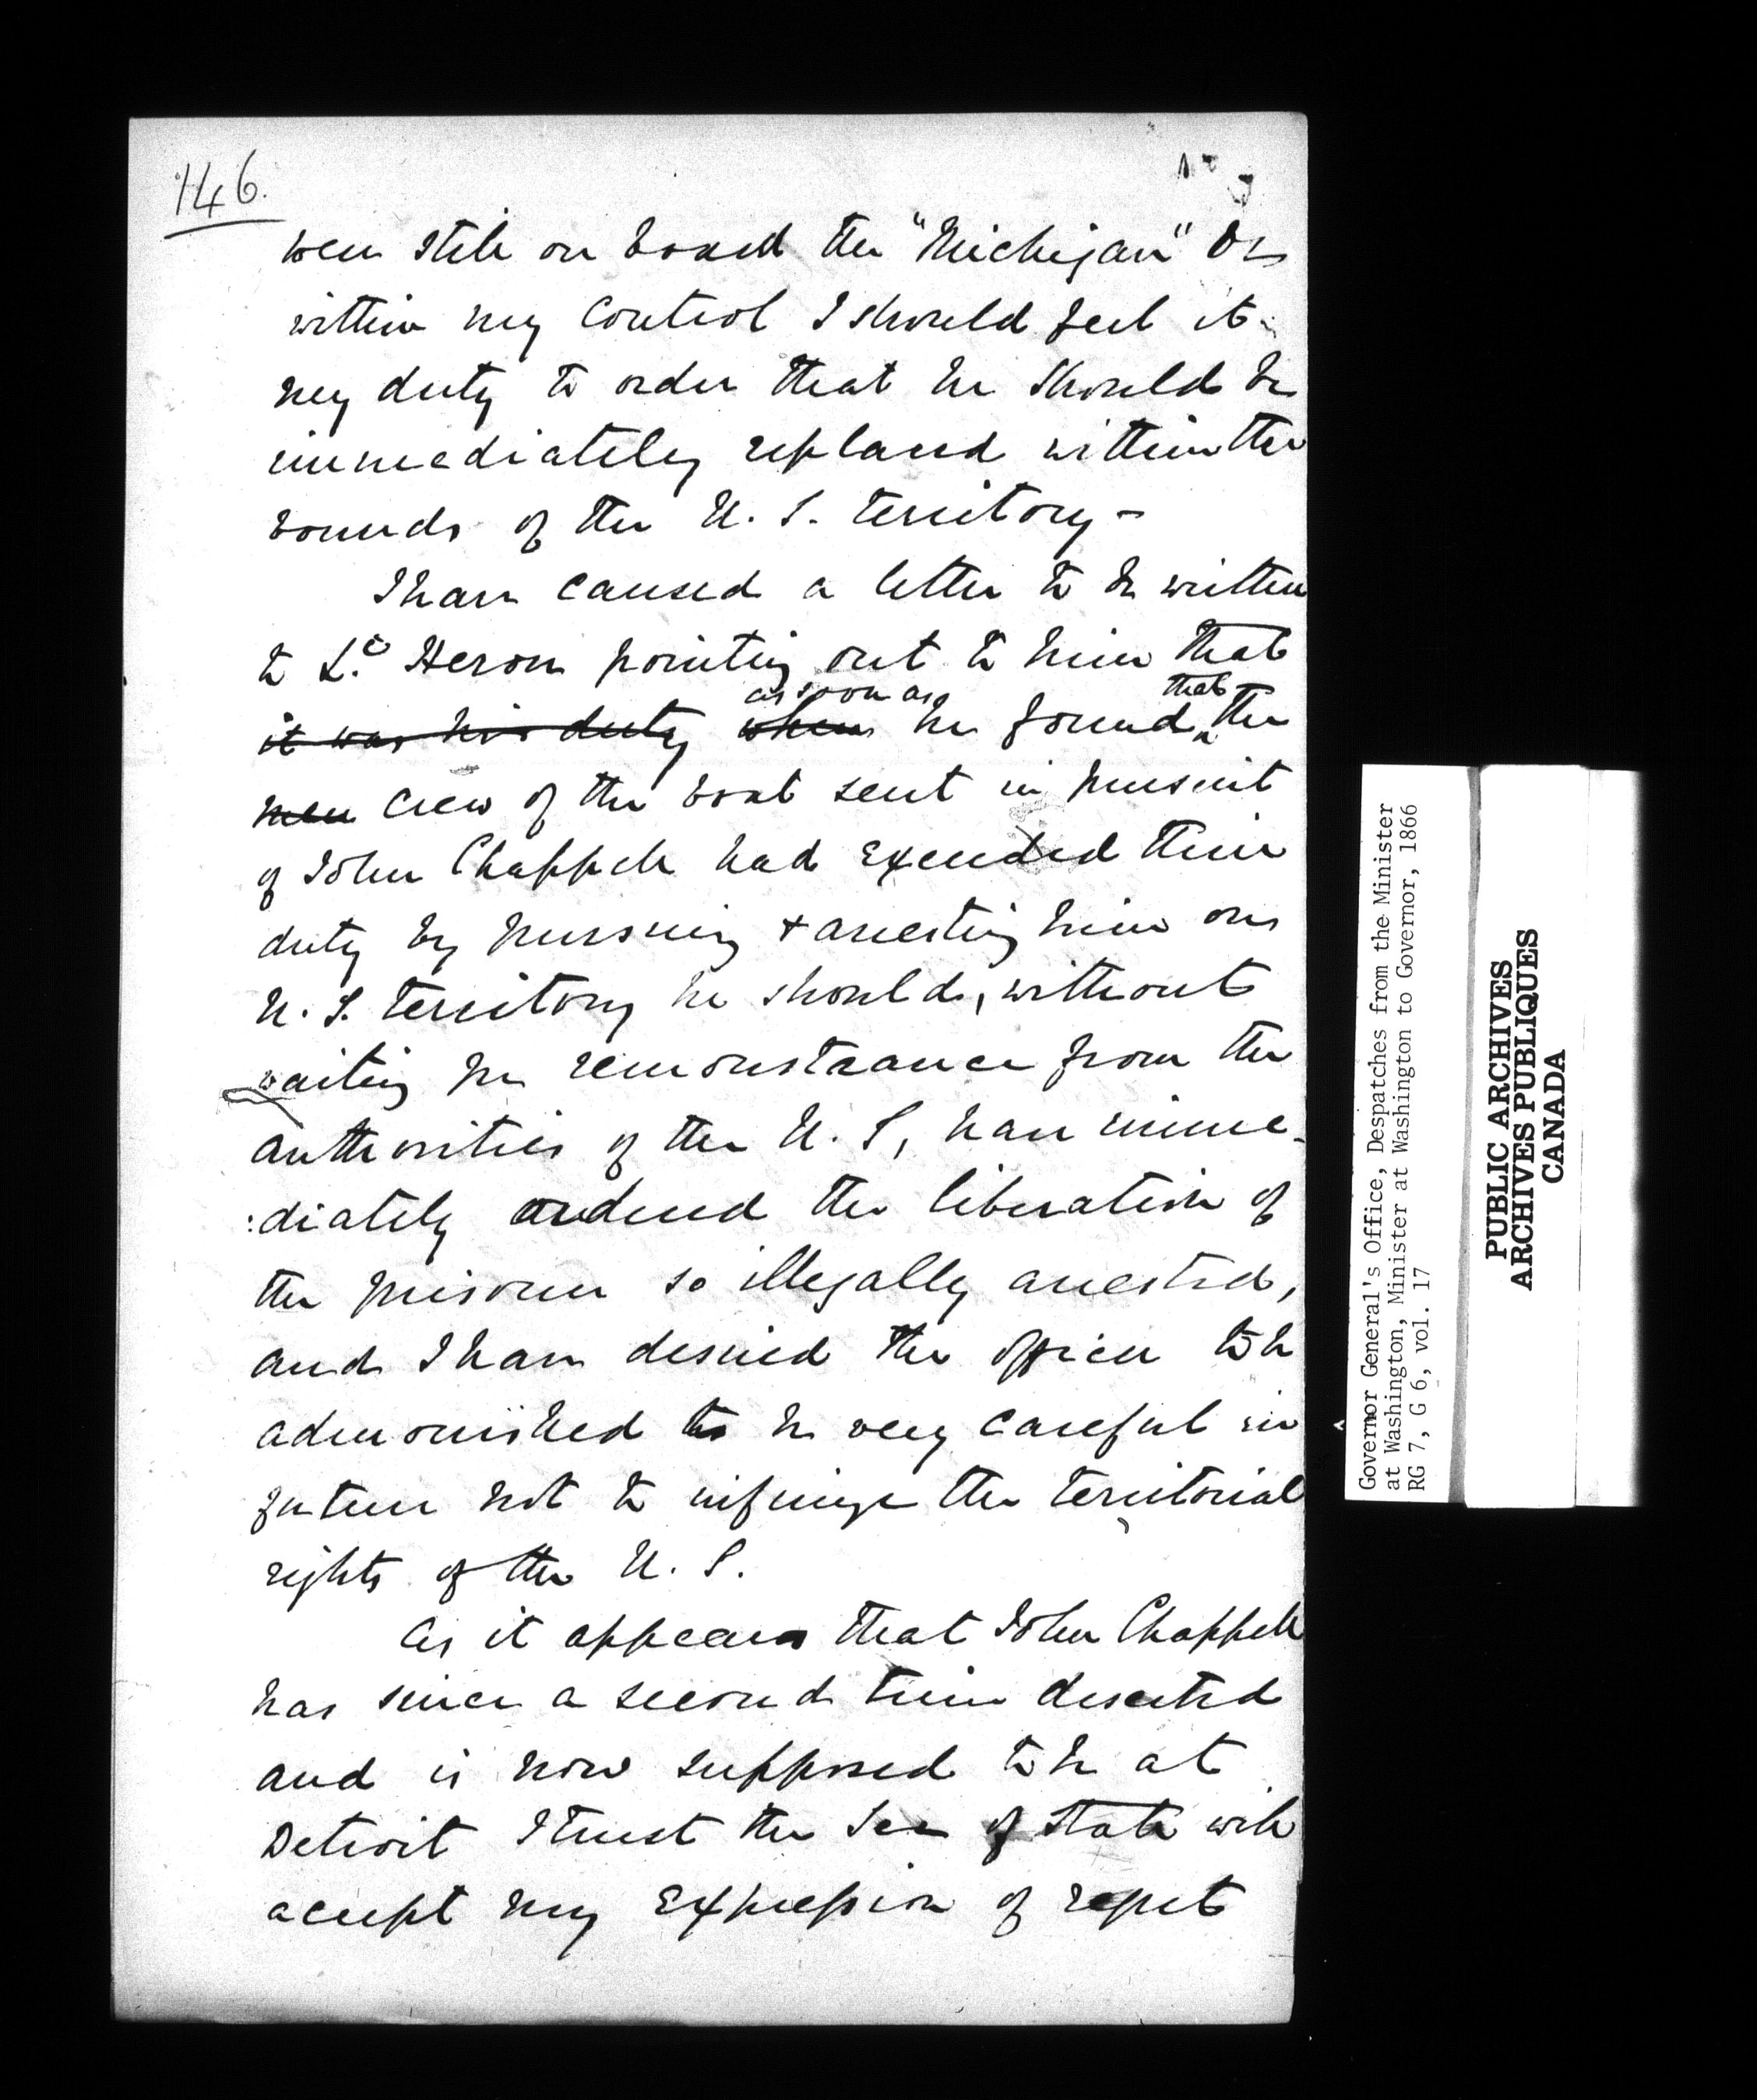 146.
were still on board the "Michigan" or
within my control I should feel it
my duty to order that he should be
immediately replaced within the
bounds of the U. S. territory -
I have caused a letter to be written
to Lt. Heron pointing out to him that
it was his duty when as soon as he found that the
men crew of the boat sent in pursuit
of John Chappell had exceeded their
duty by pursuing & arresting him on
U. S. territory he should, without
waiting for remonstrance from the
authorities of the U. S, have imme-
:diately ordered the liberation of
the prisoner so illegally arrested,
and I have desired the officer to be
admonished to be very careful in
future not to infringe the territorial
rights of the U. S.
As it appears that John Chappell
has since a second time deserted
and is now supposed to be at
Detroit I trust the Sec of State will
accept my expression of regret
Governor General's Office, Despatches from the Minister
at Washington, Minister at Washington to Governor, 1866
RG 7, G 6, vol. 17
PUBLIC ARCHIVES
ARCHIVES PUBLIQUES
CANADA